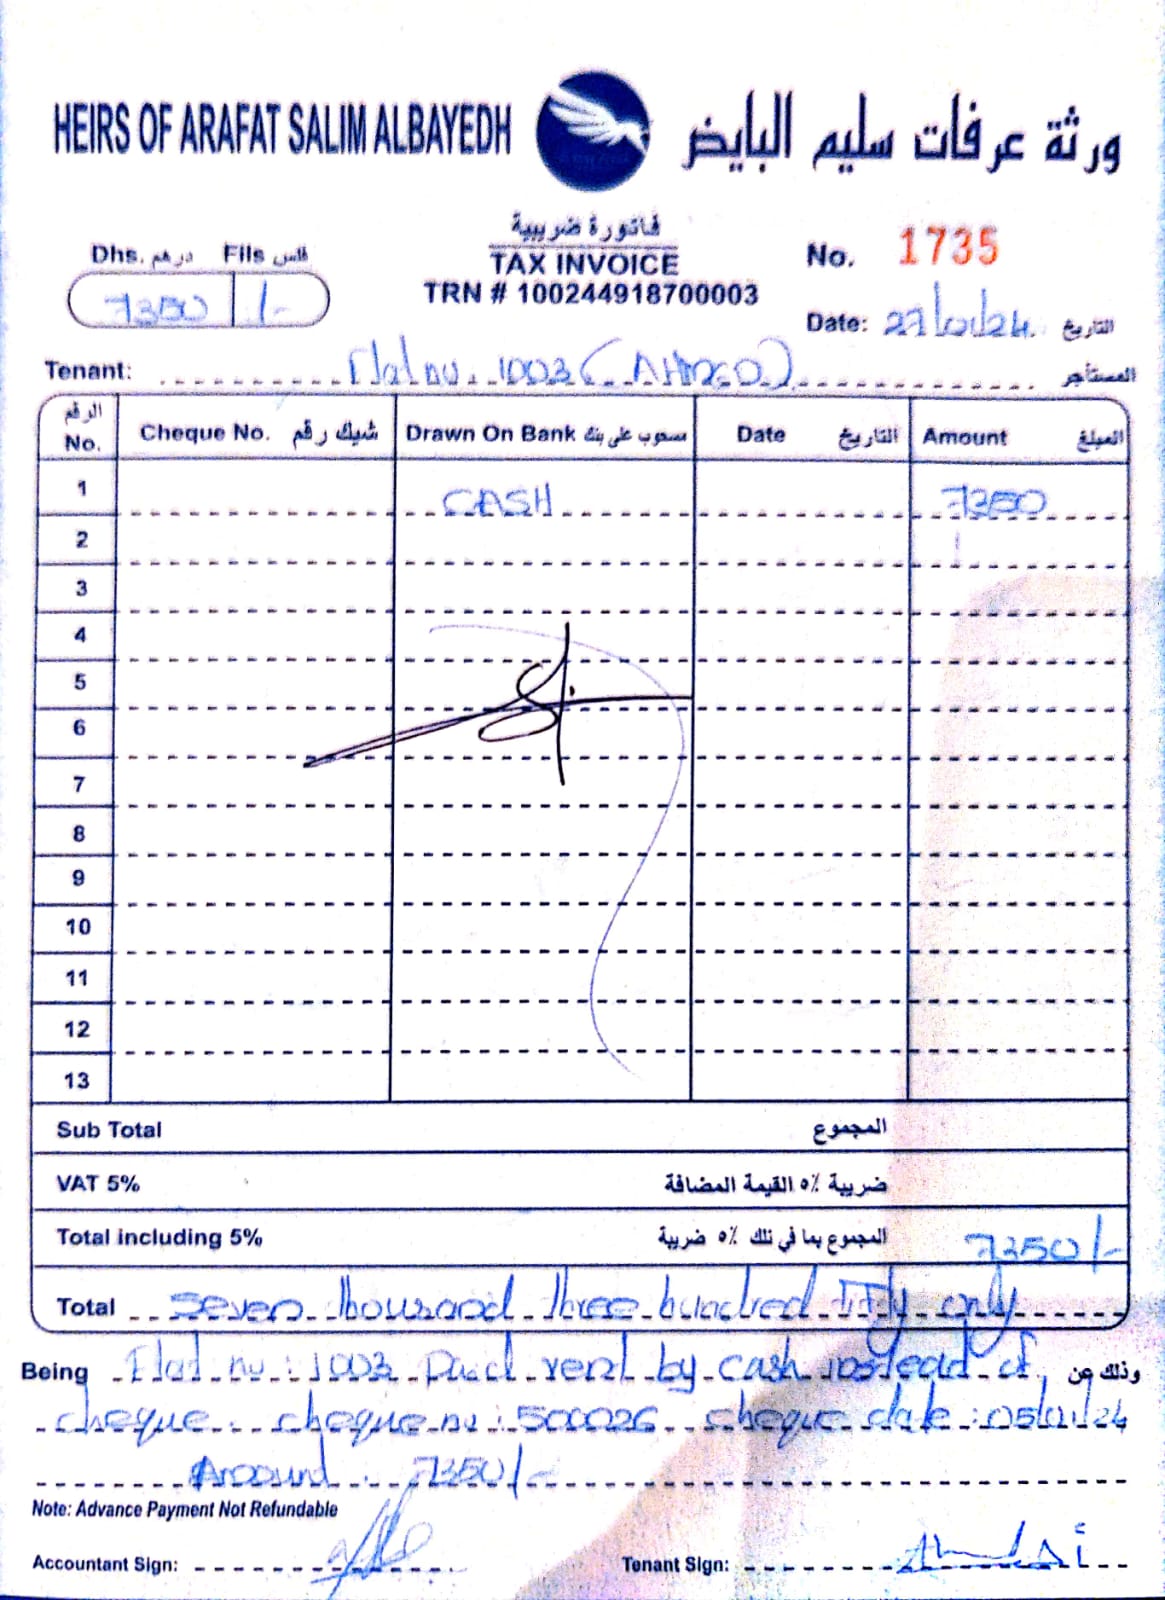 HEIRS OF ARAFAT SALIM ALBAYEDH ورثة عرفات سليم البايض
فاتورة ضريبية
TAX INVOICE
TRN # 100244918700003
Dhs. درهم Fils فلس
7350 /-
No. 1735
Date: 27/01/24 التاريخ
Tenant: Flat no. 1003 (AHMED) المستأجر
الرقم No. Cheque No. شيك رقم Drawn On Bank مسحوب على بنك Date التاريخ Amount المبلغ
1 CASH 7350
2
3
4
5
6
7
8
9
10
11
12
13
Sub Total المجموع
VAT 5% ضريبة ٥٪ القيمة المضافة
Total including 5% المجموع بما في ذلك ٥٪ ضريبة 7350/-
Total Seven Thousand Three hundred Fifty only
Being Flat no: 1003 Paid rent by cash instead of وذلك عن
cheque. cheque no: 500026 cheque date: 05/01/24
Amount: 7350/-
Note: Advance Payment Not Refundable
Accountant Sign:
Tenant Sign: